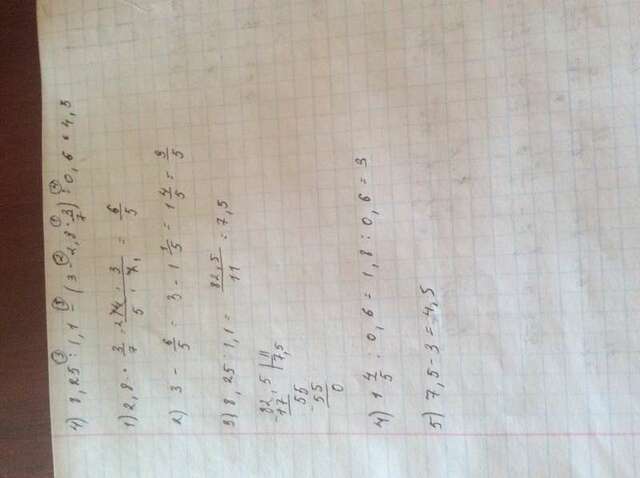 ③ ⑤ ② ① ④
4) 8,25 : 1,1 - (3 - 2,8 · 3/7) : 0,6 = 4,5
1) 2,8 · 3/7 = 2 14 · 3 / 5 · 7 1 = 6/5
2) 3 - 6/5 = 3 - 1 1/5 = 1 4/5 = 9/5
3) 8,25 : 1,1 = 82,5/11 = 7,5
- 82,5 | 11
77 7,5
55
- 55
0
4) 1 4/5 : 0,6 = 1,8 : 0,6 = 3
5) 7,5 - 3 = 4,5